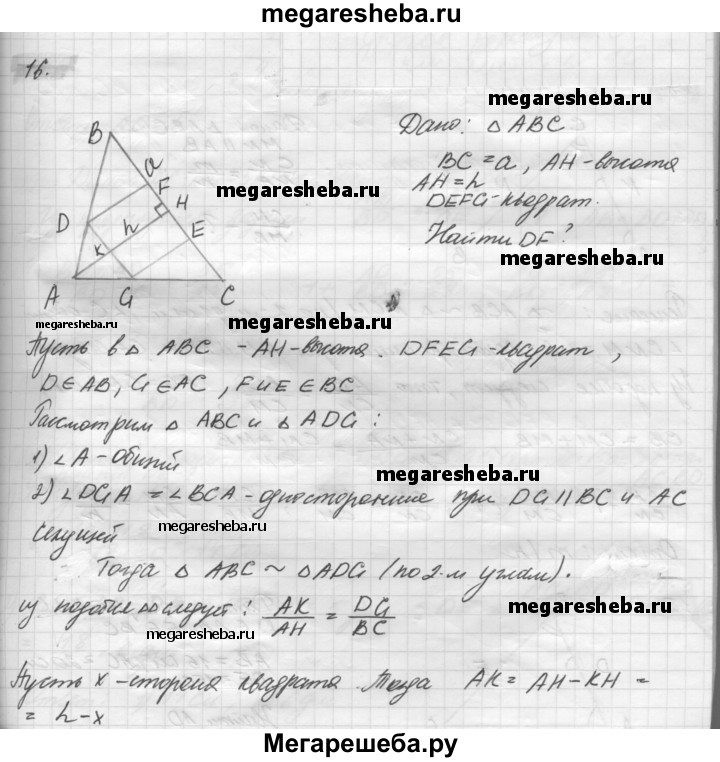 megaresheba.ru
16.
megaresheba.ru
Дано: △ ABC
B
a
BC = a, AH - высота
megaresheba.ru
F
AH = h
H
DEFG - квадрат.
D
h
E
Найти DF?
K
megaresheba.ru
A G C
megaresheba.ru
megaresheba.ru
Пусть в △ ABC - AH - высота. DFEG - квадрат,
D∈AB, G∈AC, F и E ∈ BC
Рассмотрим △ ABC и △ ADG:
1) ∠A - общий
megaresheba.ru
2) ∠DGA = ∠BCA - односторонние при DG || BC и AC
секущей
megaresheba.ru
Тогда △ ABC ~ △ADG (по 2-м углам).
из подобия △△ следует: AK/AH = DG/BC
megaresheba.ru
megaresheba.ru
Пусть x - сторона квадрата. Тогда AK = AH - KH =
= h - x
Мегарешеба.ру